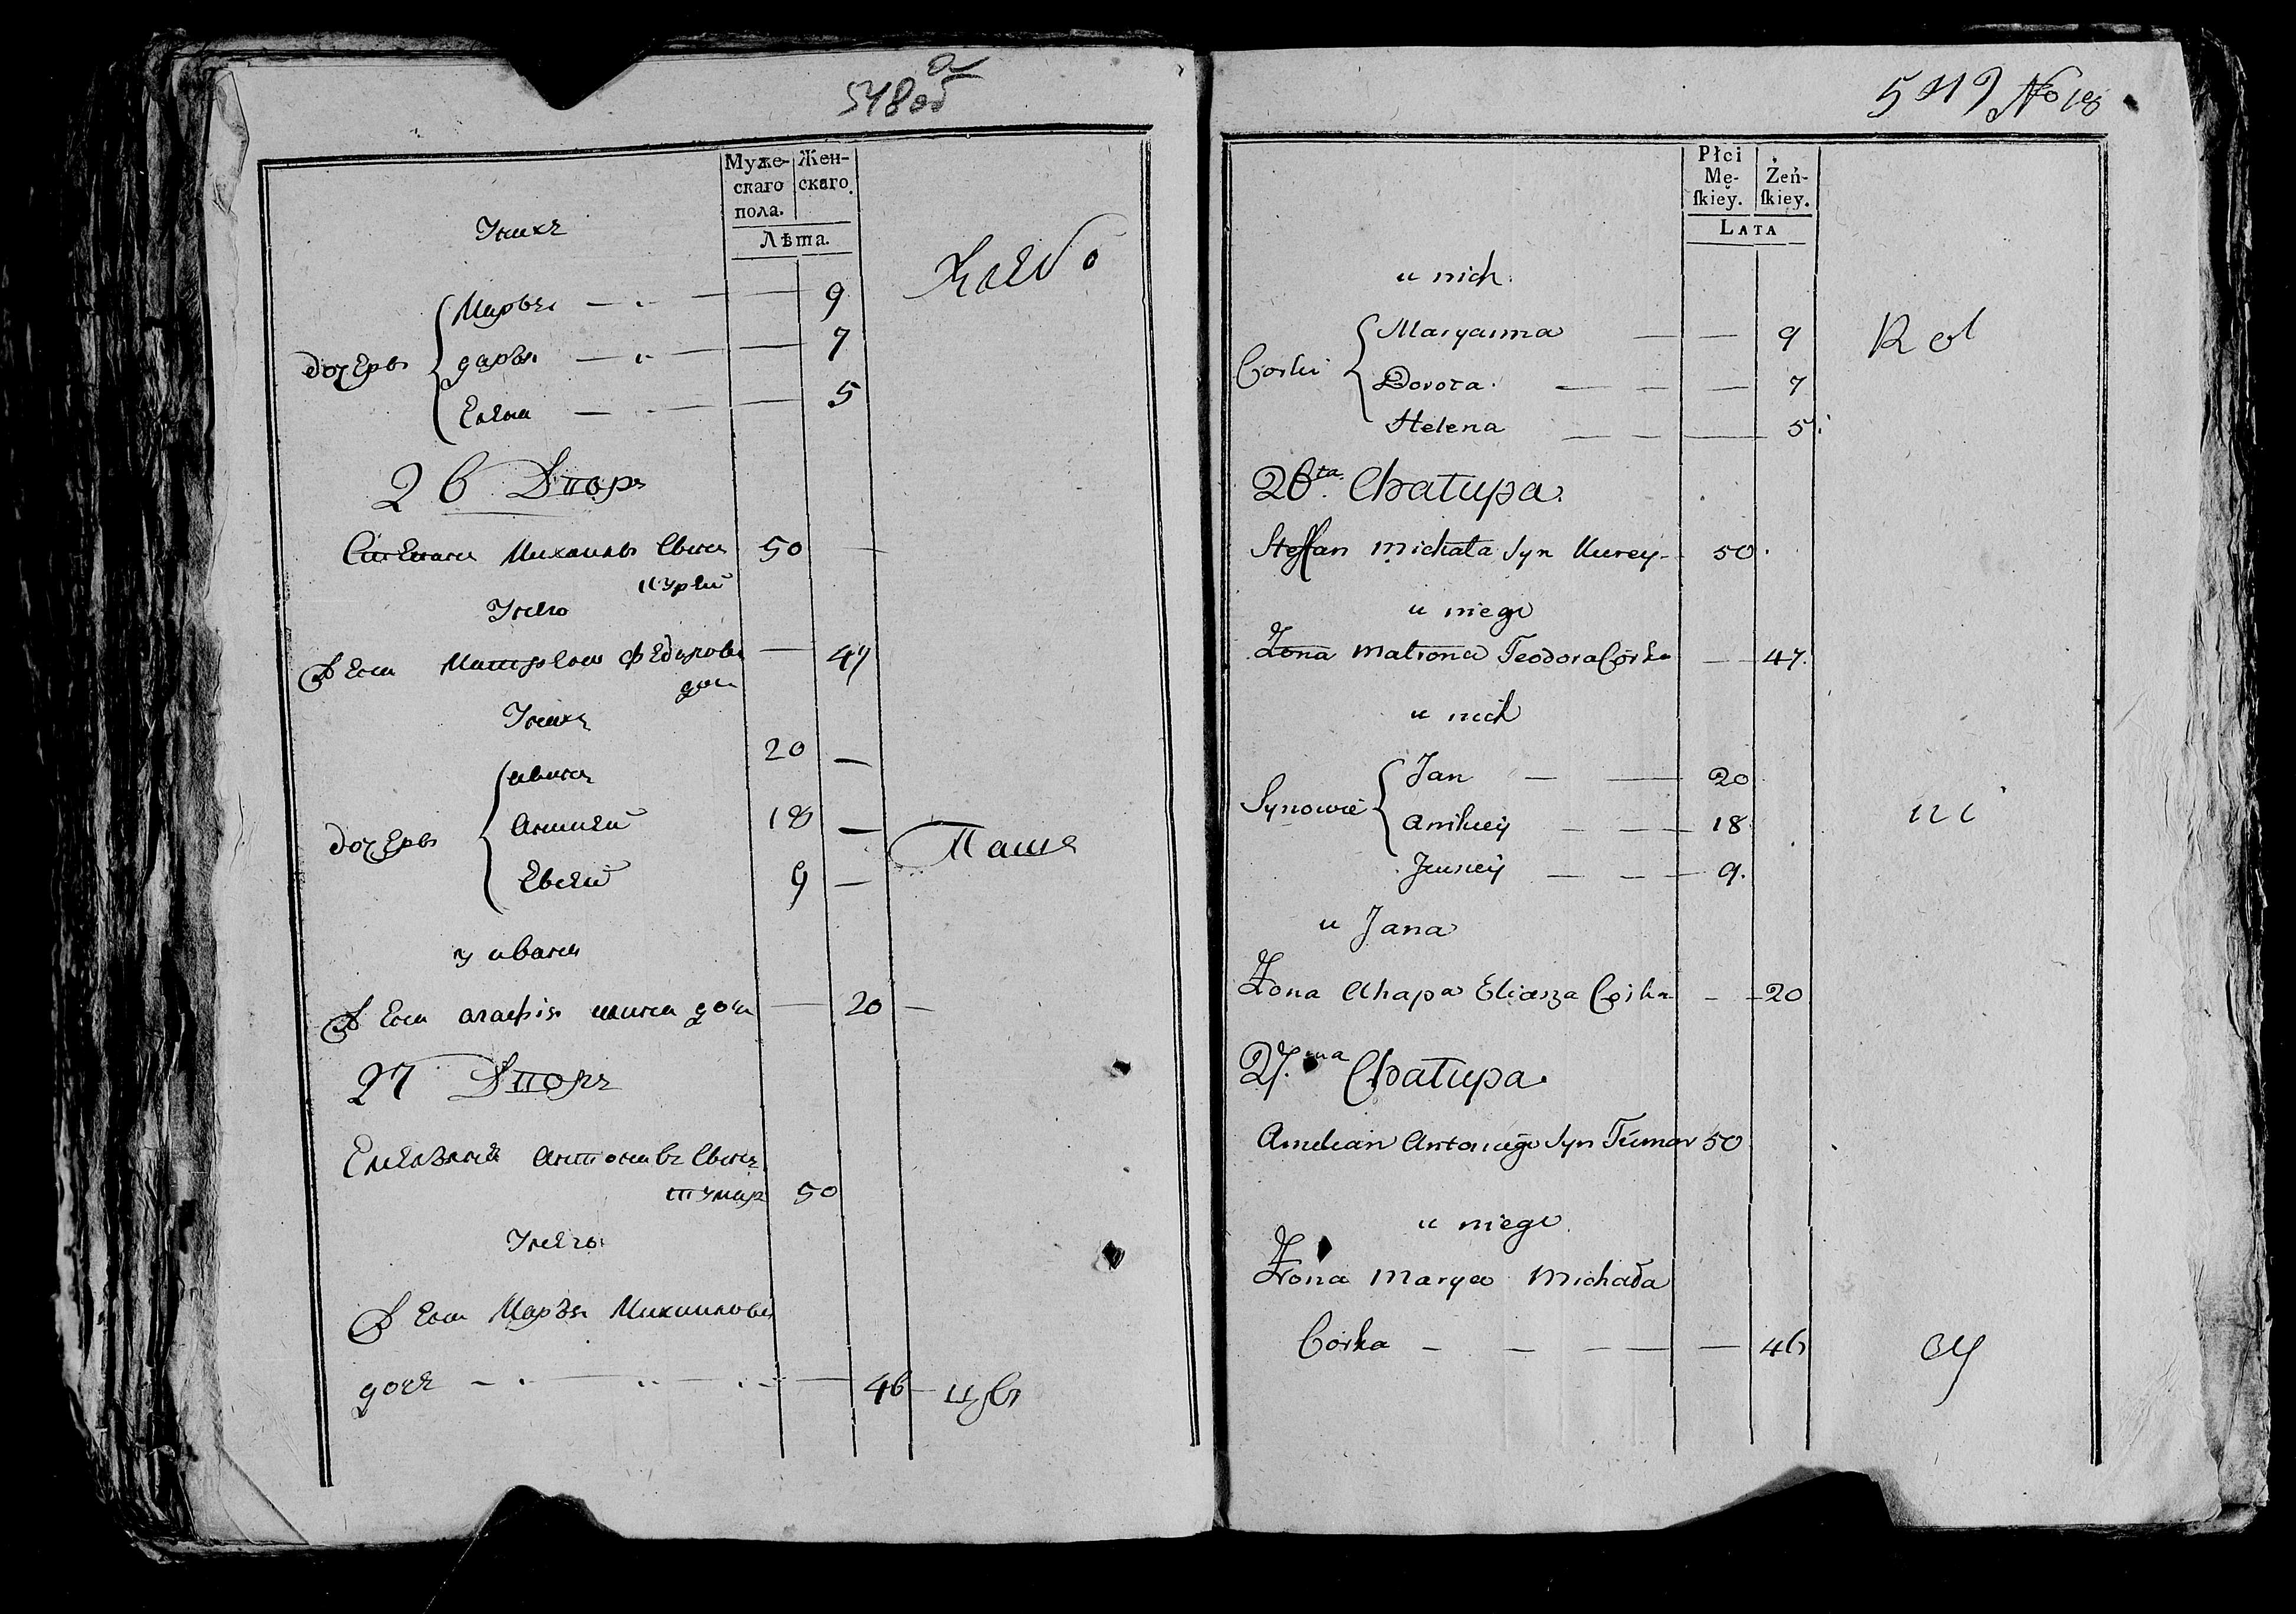 548 об
а
Муже-
скаго
пола.
Жен-
скаго.
Лѣта.
Унихъ
дочеры
Марья 9
дарья 7
Елена 5
Хлебо
26 Дворъ
Степанъ Михаиловъ Сынъ 50
Курей
Унего
Жена Матрона Федорова 47
дочь
Унихъ
дочеры
иванъ 20
Аникей 18
Евсей 9
Паше
у ивана
Жена агафія дочь 20
27 Дворъ
Антоновъ Сынъ
тумар 50
Унего
Жена Марья Михаилова
дочь 46
цы
549 No 18
Płci
Mę-
ſkiey.
Żeń-
ſkiey.
LATA
u nich
Corki
Maryanna 9
Dorota 7
Helena 5
Rol
26ta Chatupa.
Steffan Michała Syn Kurey 50.
u niego
Żona Matrona Teodora Córka 47.
u nich
Synowie
Jan 20
Anikiey 18
9.
ni
u Jana
Żona Ahapa Eliasza Corka 20
27.ma Chatupa.
Amelian Antoniego Syn Tumar 50
u niego
Żona Marya Michała
Corka 46
cy